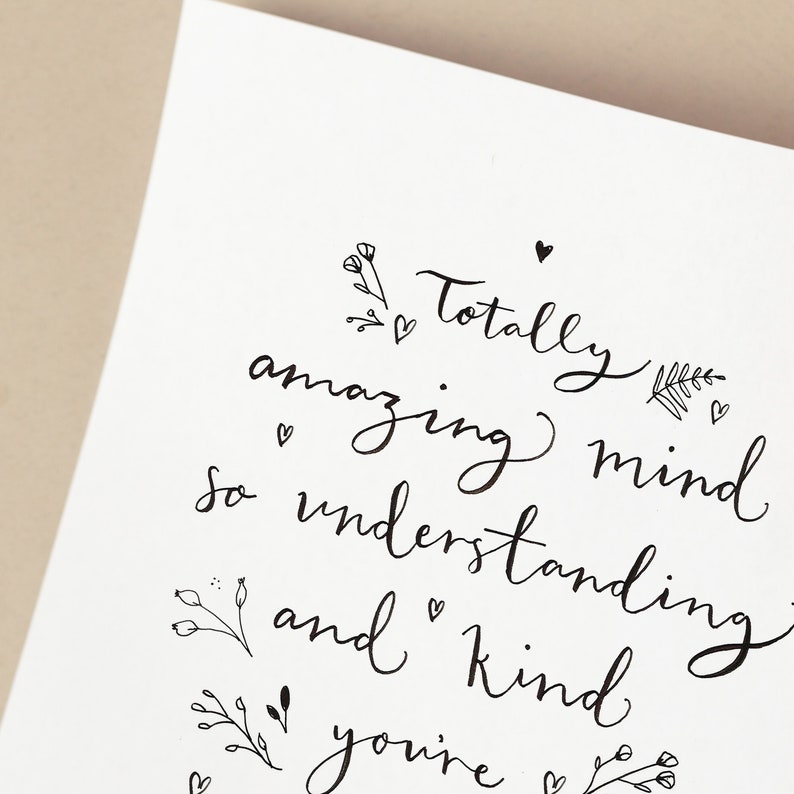 Totally
amazing mind
so understanding
and kind
you're